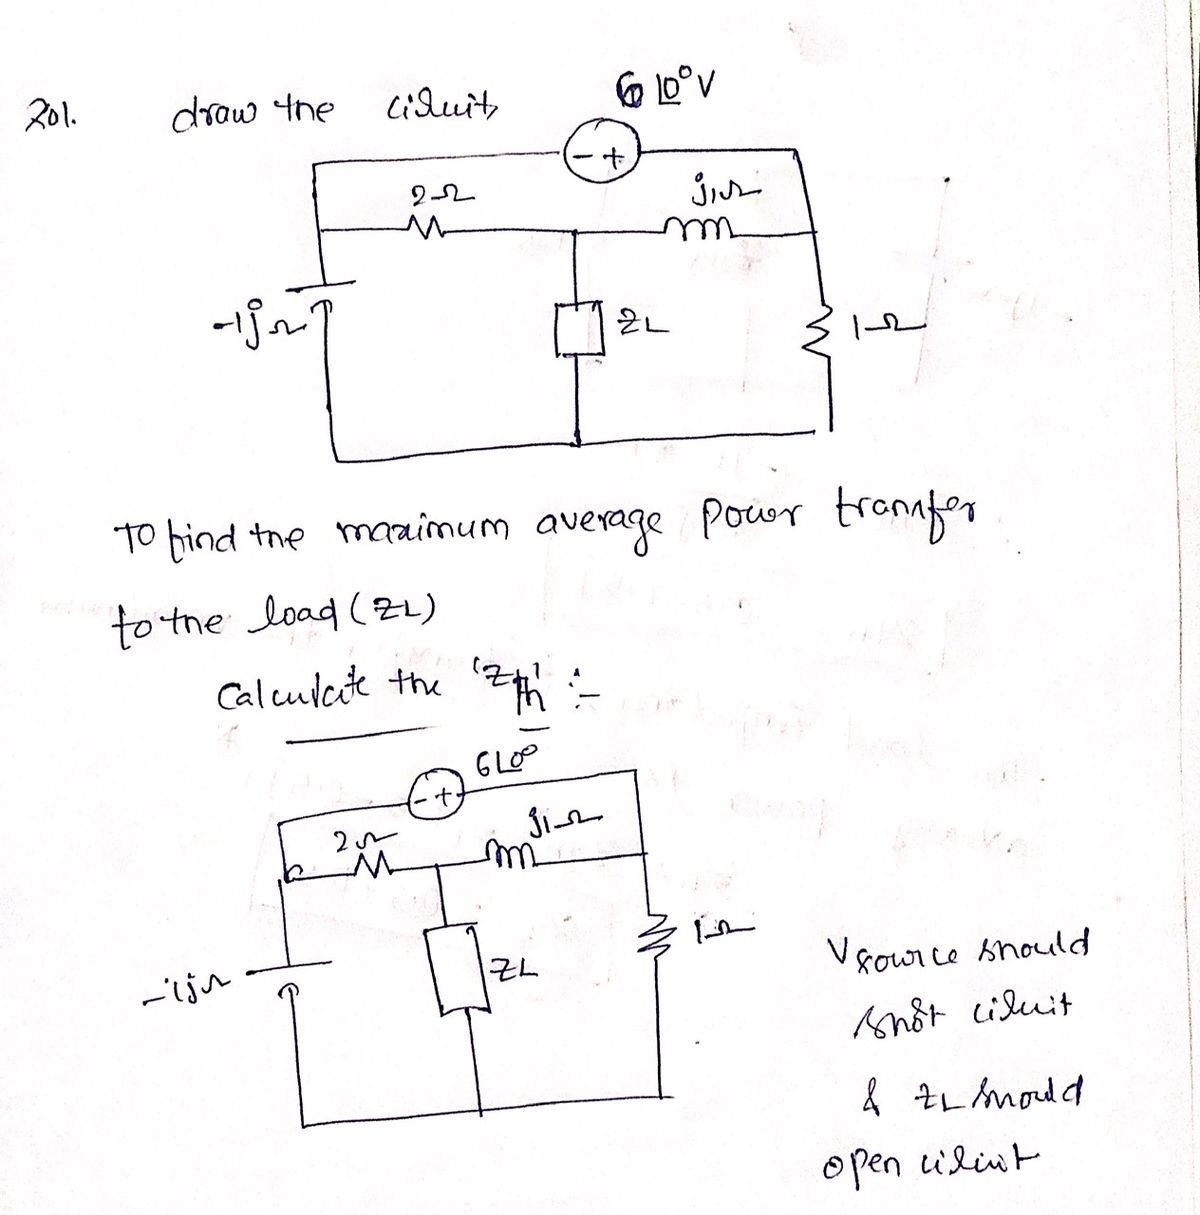 201. draw the circuit
6∠0° V
- +
2Ω
j1Ω
-1jΩ
ZL
1Ω
To find the maximum average power transfer
to the load (ZL)
Calculate the 'Zth' :-
6∠0°
- +
2Ω
j1Ω
-1jΩ
ZL
1Ω
V source should
short circuit
& ZL should
open circuit